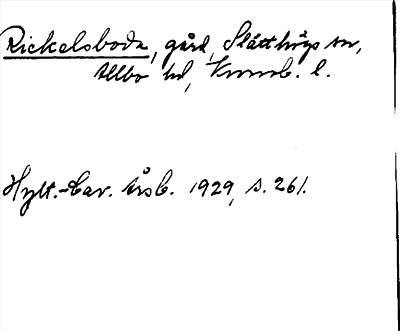 Rickelsboda, gård, Slätthögs sn,
Allbo hd, Kronob. l.
Hylt.-Cav. Årsb. 1929, s. 261.